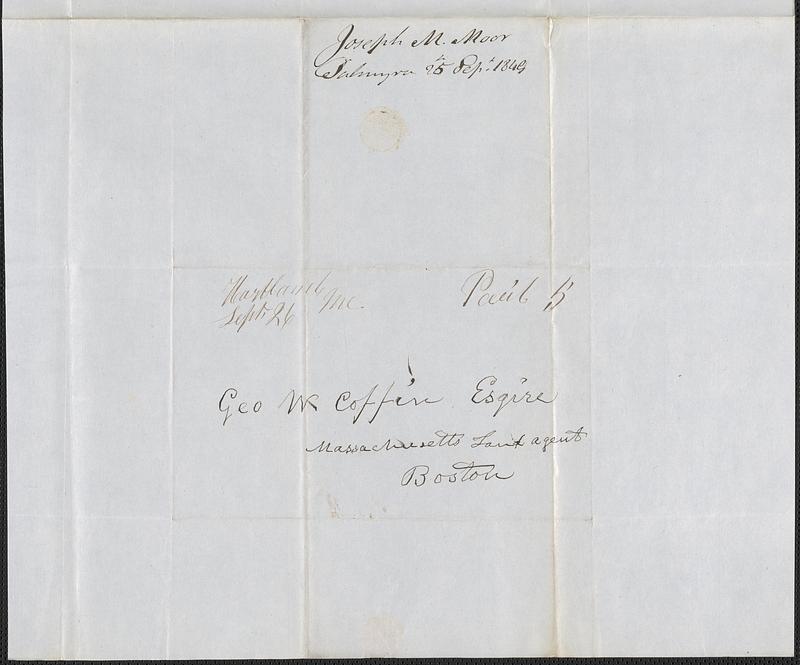 Joseph M. Moor
Palmyra 25 Sept. 1849
Hartland Me.
Sept 26
Paid 5
Geo W Coffin Esqire
Massachusetts Land agent
Boston